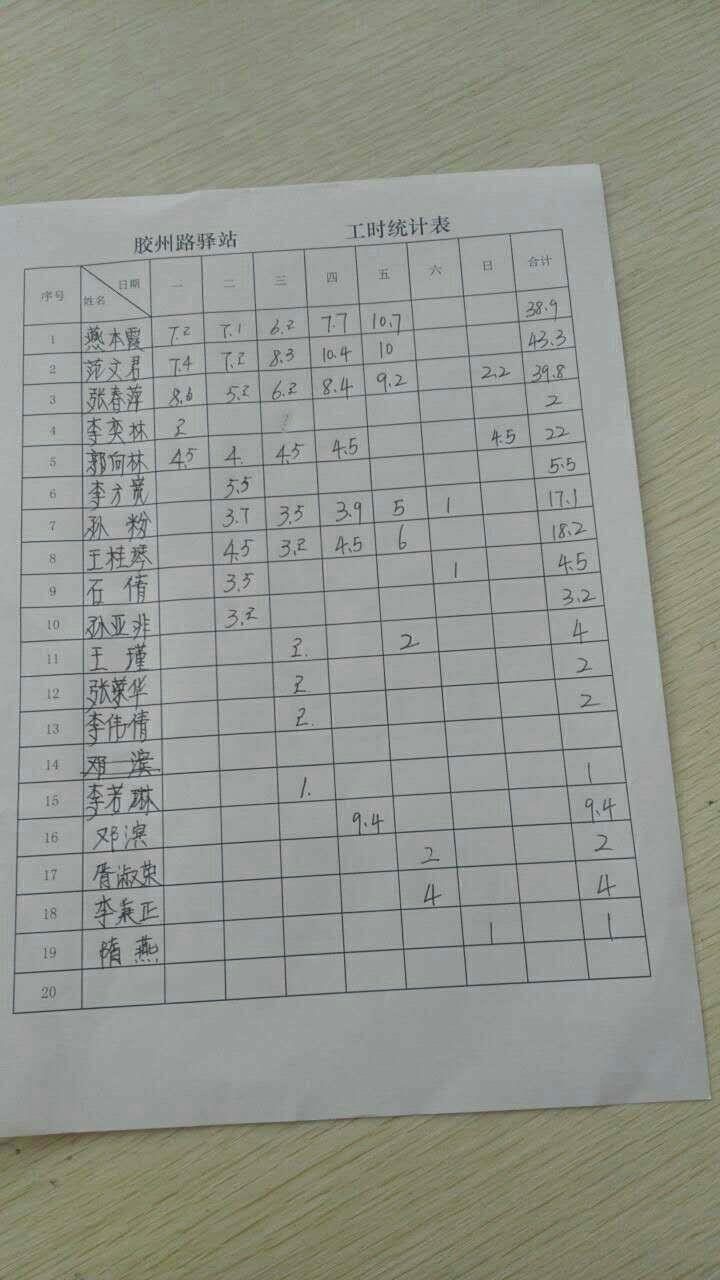 胶州路驿站 工时统计表
序号 日期 姓名 一 二 三 四 五 六 日 合计
1 燕本霞 7.2 7.1 6.2 7.7 10.7 38.9
2 范文君 7.4 7.2 8.3 10.4 10 43.3
3 张春萍 8.6 5.2 6.2 8.4 9.2 2.2 39.8
4 李奕林 2 2
5 郭向林 4.5 4. 4.5 4.5 4.5 22
6 李方宽 5.5 5.5
7 孙粉 3.7 3.5 3.9 5 1 17.1
8 王桂琴 4.5 3.2 4.5 6 18.2
9 石倩 3.5 1 4.5
10 孙亚非 3.2 3.2
11 王瑾 2. 2 4
12 张荣华 2 2
13 李伟倩 2. 2
14 邓滨
15 李若琳 1. 1
16 邓滨 9.4 9.4
17 胥淑荣 2 2
18 李秉正 4 4
19 隋燕 1 1
20